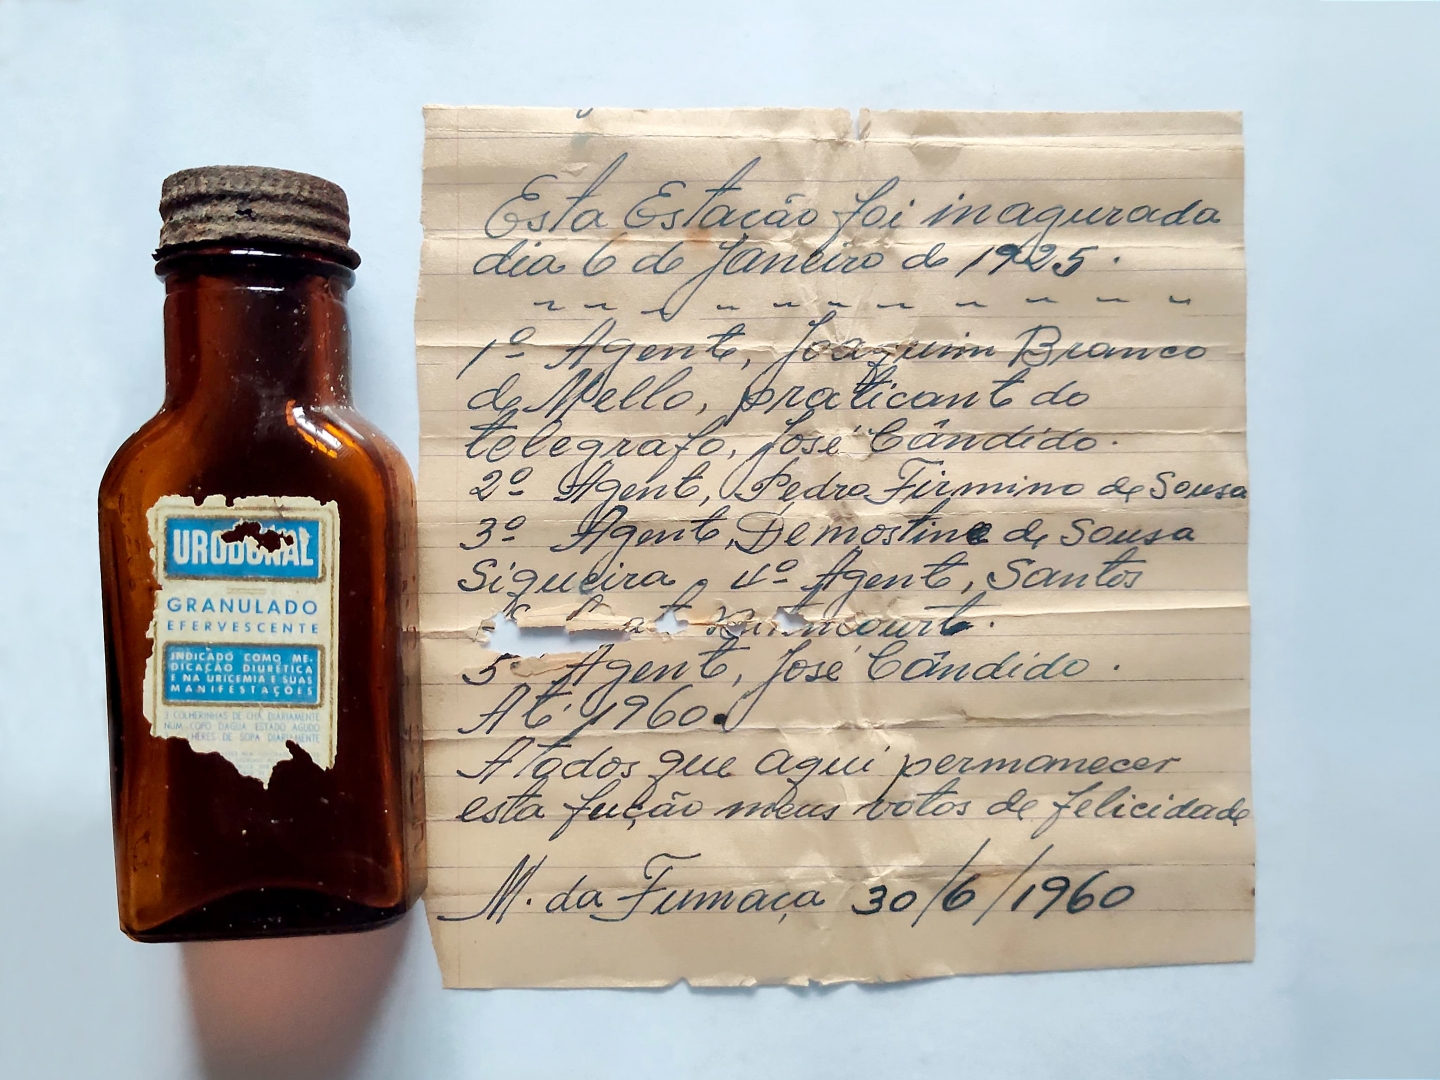 URODONAL
GRANULADO
EFERVESCENTE
INDICADO COMO ME-
DICAÇÃO DIURÉTICA
E NA URICEMIA E SUAS
MANIFESTAÇÕES
3 COLHERINHAS DE CHÁ DIARIAMENTE
NUM COPO DAGUA ESTADO AGUDO
LHERES DE SOPA DIARIAMENTE
Esta Estação foi inagurada
dia 6 de Janeiro de 1925.
1º Agente, Joaquim Branco
de Mello, praticante do
telegrafo, José Cândido.
2º Agente, Pedro Firmino de Sousa
3º Agente, Demostine de Sousa
Siqueira, 4º Agente, Santos
Bitencourt.
5º Agente, José Cândido.
Até 1960.
A todos que aqui permanecer
esta fução meus votos de felicidade
M. da Fumaça 30/6/1960